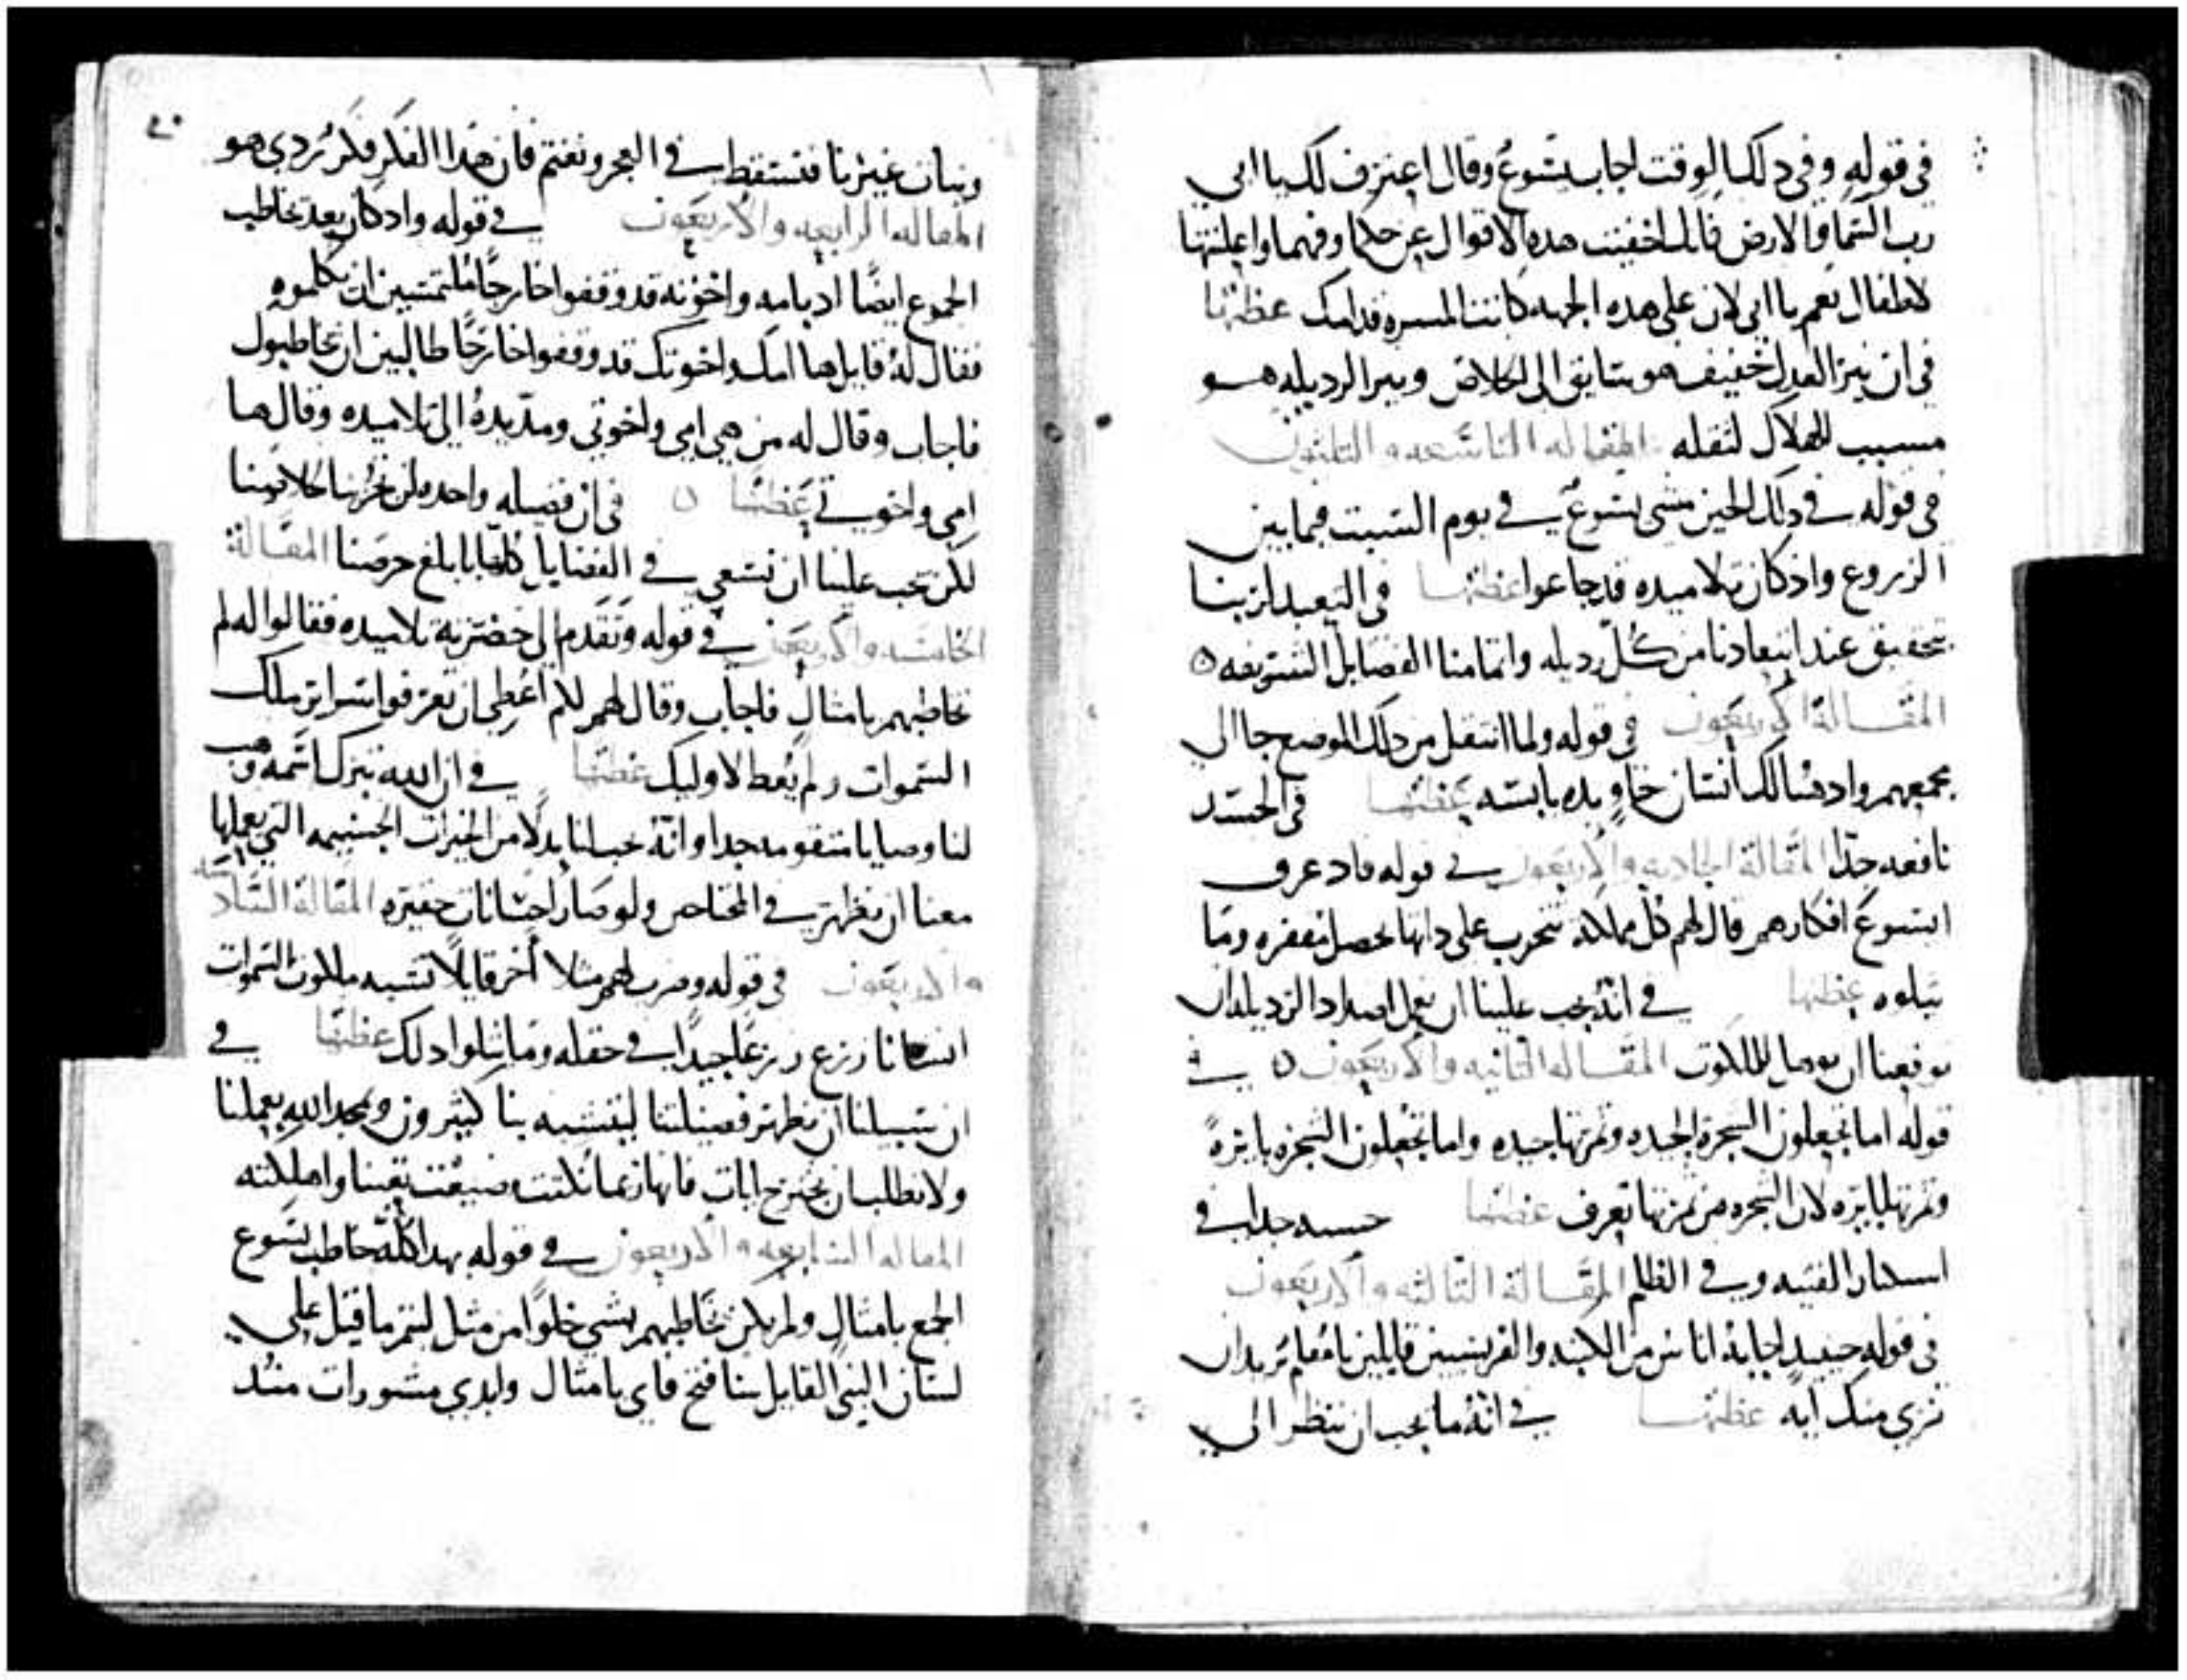 في قوله وفي دلك الوقت اجاب يسوع وقال اعترف لك يا ابي
رب السما والارض فانك اخفيت هده الاقوال عن حكما وفهما واعلنتها
لاطفال نعم يا ابي لان على هده الجهه كانت المسره قدامك عظتها
في ان نير العدل خفيف هو سايق الى الخلاص ونير الرديله هو
مسبب الهلاك لثقله المقاله التاسعه والثلثون
في قوله في دلك الحين مشى يسوع في يوم السبت فيما بين
الزروع واذ كان تلاميده قد جاعوا عظتها في التعيد لربنا
بتحقيق عند ابتعادنا من كل رديله واتمامنا الفضايل الشريفه ٥
المقالة الاربعون في قوله ولما انتقل من دلك الموضع جا الى
مجمعهم وادهنالك انسان حاو يده يابسه عظتها في الحسد
نافعه جدّا المقالة الحاديه والاربعون في قوله فاد عرف
ايسوع افكارهم قال لهم كل مملكه تتحرب على داتها تحصل مقفره وما
يتلوه عظتها في انه يجب علينا ان نعمل اضداد الرديله ان
توقعنا ان نوهل للملكوت المقاله الثانيه والاربعون ٥ في
قوله اما تجعلون الشجرة الجيده وثمرتها جيده واما تجعلون الشجره بايرةً
وثمرتها بايره لان الشجره من ثمرتها تعرف عظتها حسنه جدا في
الفتنه وفي الظلم المقالة الثالثه والاربعون
في قوله حينيد اجابه اناس من الكتبه والفريسيين قايلين يا معلم نريد ان
نرى منك ايه عظتها في انه ما يجب ان ننظر الى
٢٠
وبنات غيرنا فنسقط في الفجر ونغتم فان هدا الفكر فكر ردي هو
المقاله الرابعه والاربعون في قوله واد كان بعد يخاطب
الجموع ايضًا اد بامه واخوته قد وقفوا خارجًا ملتمسين ان يكلموه
فقال له قايل ها امك واخوتك قد وقفوا خارجًا طالبين ان يخاطبوك
فاجاب وقال له من هي امي واخوتي ومد يدهُ الى تلاميده وقال ها
امي واخوتي عظتها ٥ في ان فضيله واحده لن تحرينا لخلاصنا
لكن يجب علينا ان نسعى في الفضايل كلها بابلغ حرصنا المقالة
الخامسه والاربعون في قوله وتقدم الى حضرته تلاميده فقالوا له لم
تخاطبهم بامثال فاجاب وقال لهم لكم اعطي ان تعرفوا اسراير ملك
السموات ولم يُعط لاوليك عظتها في ان الله تبرك اسمه وهب
لنا وصايا متقومه جدا وانه يهب لنا بدلًا من الخيرات الجسيمه التي يعملها
معنا ان نظهر في المخاض ولو صار احسانات حقيره المقالة السادسه
والاربعون في قوله وضرب لهم مثلا أخر قايلًا تشبه ملكوت السموات
انسانا زرع زرعًا جيدًا في حقله وما يتلوا دلك عظتها في
ان سبيلنا ان نظهر فضيلتنا ليتشبه بنا كثيرون ويمجد الله بعملنا
ولا نطلب ان نجترح ايات فانها ربما كانت ضيعت تعبنا واهلكته
المقاله السابعه والاربعون في قوله بهدا كله خاطب يسوع
الجمع بامثال ولم يكن يخاطبهم بشي خلوًا من مثل ليتم ما قيل على
لسان النبي القايل سافتح فاي بامثال وابدي مستورات مند